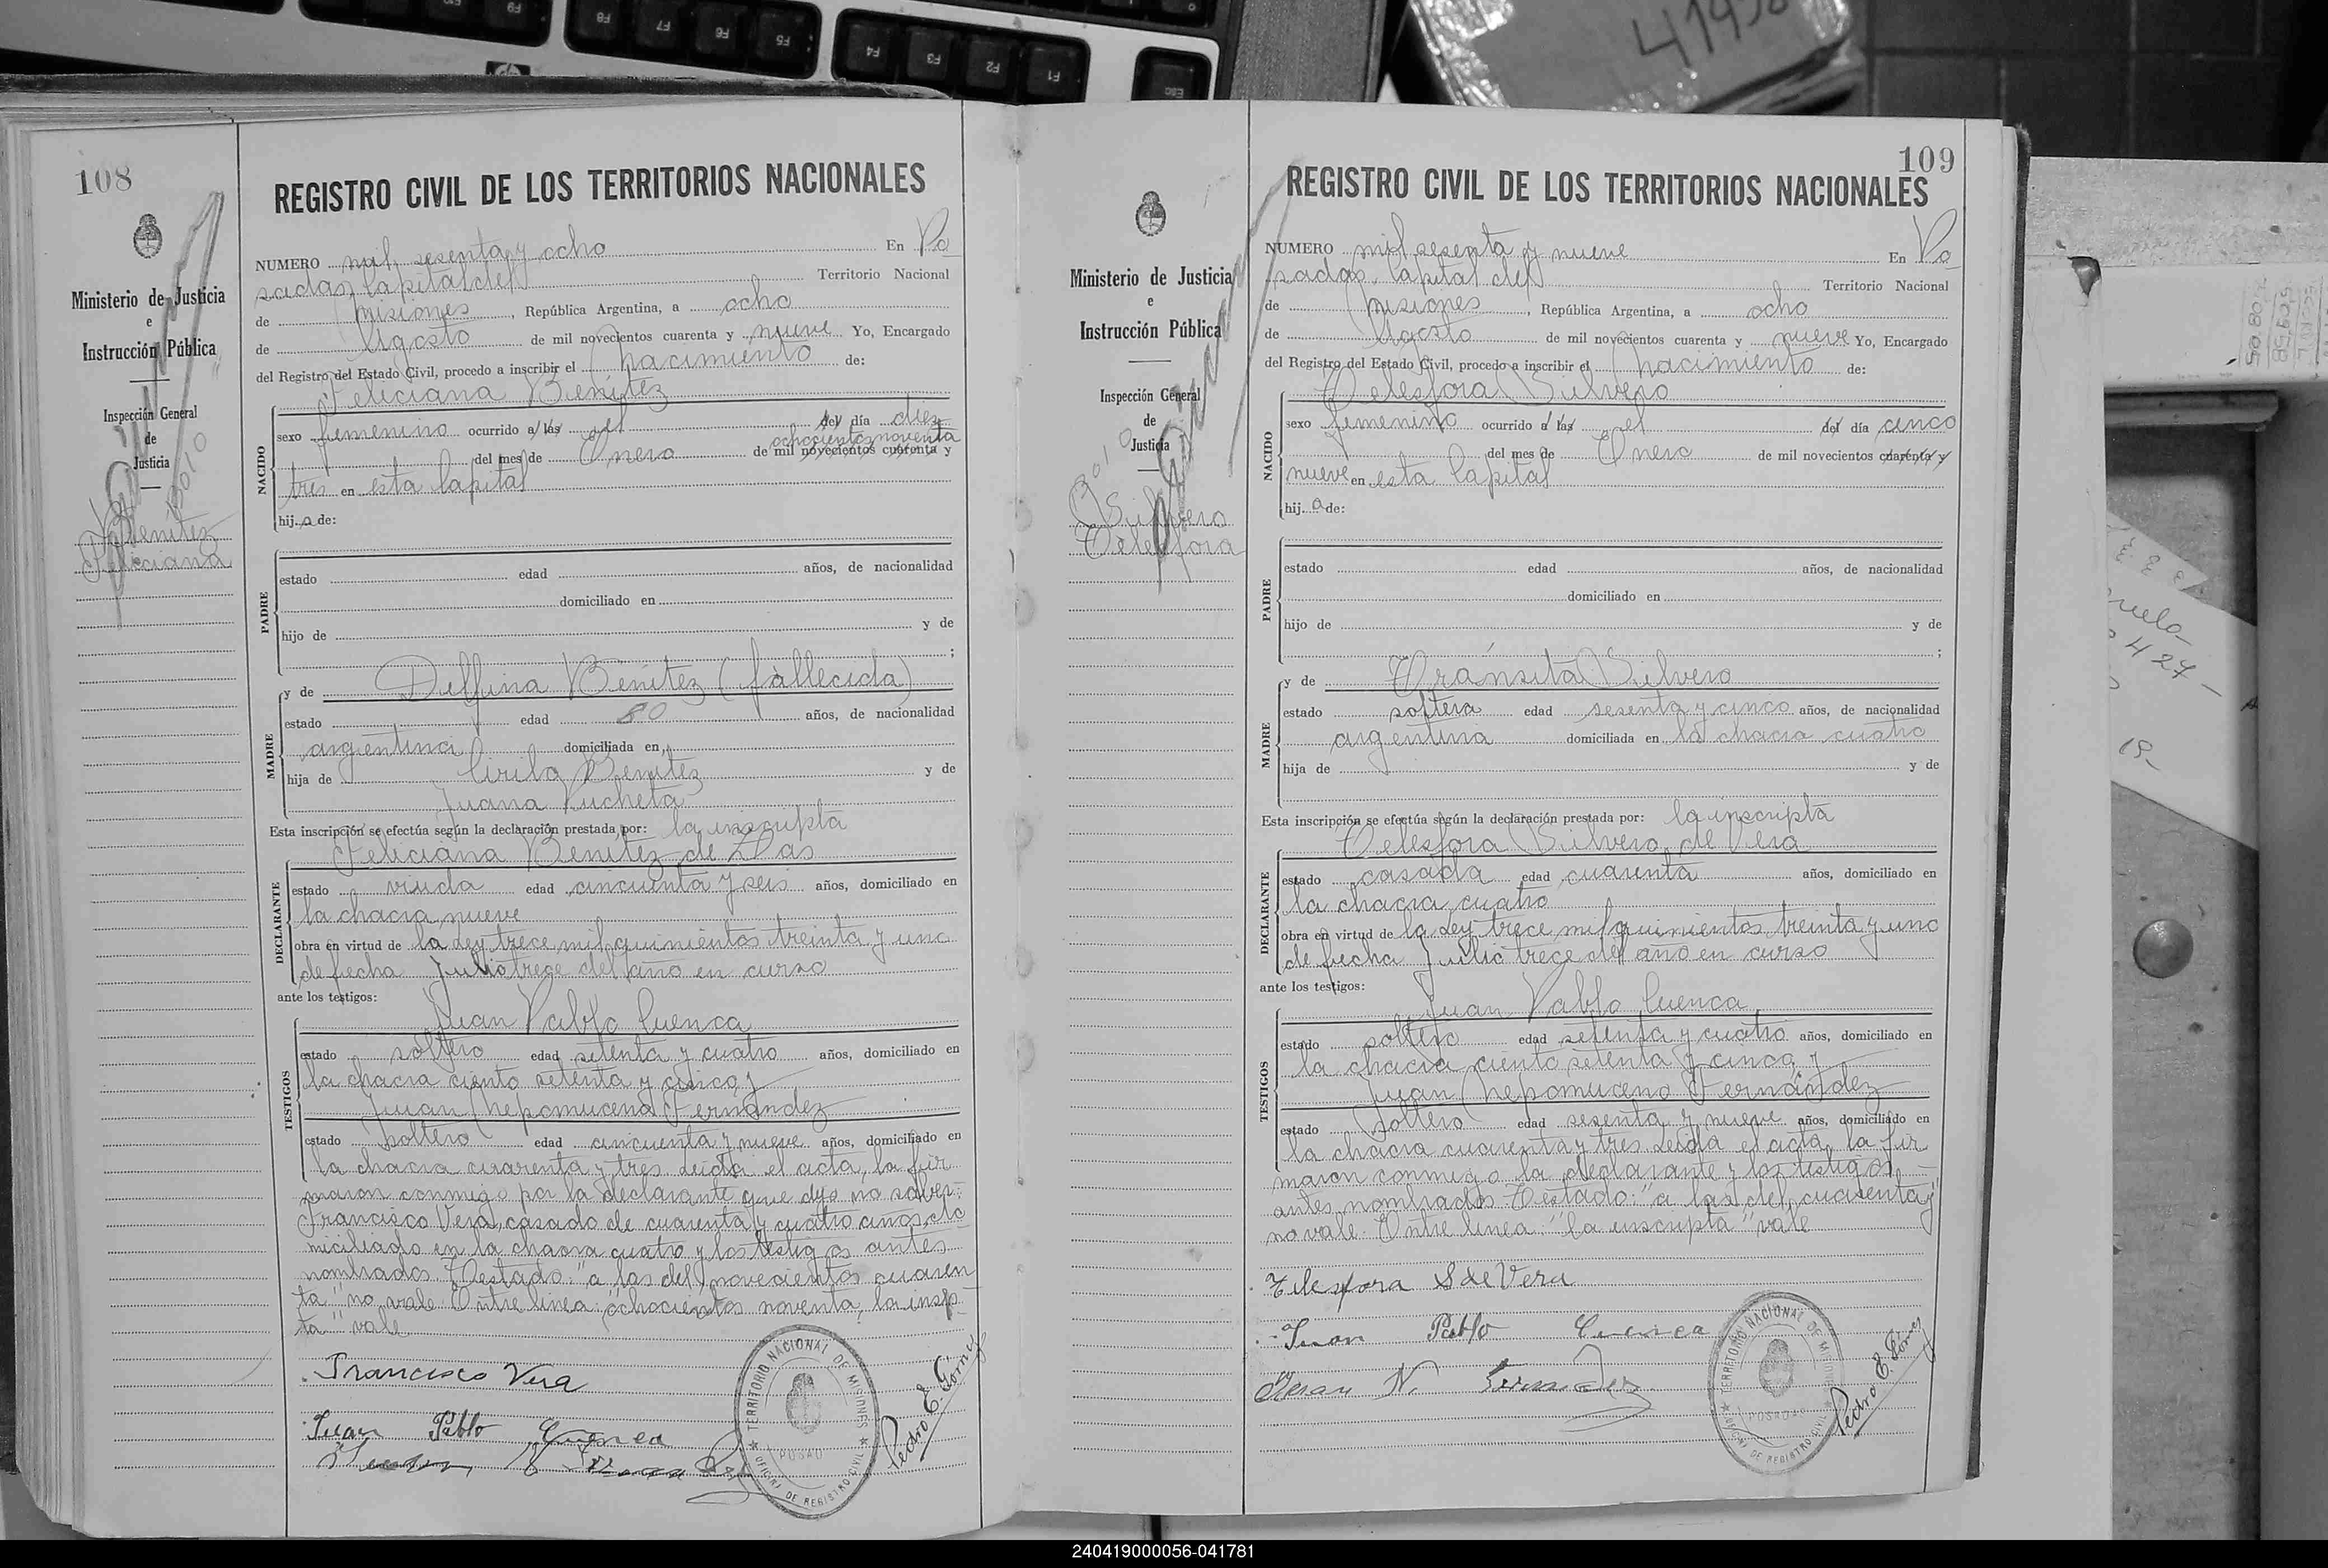 F9
F8
F7
F6
F5
F4
F3
F2
F1
ESC
108
Ministerio de Justicia
e
Instrucción Pública
Inspección General
de
Justicia
Benítez
Feliciana
REGISTRO CIVIL DE LOS TERRITORIOS NACIONALES
NUMERO mil sesenta y ocho En Po
sadas, Capital del Territorio Nacional
de Misiones, República Argentina, a ocho
de Agosto de mil novecientos cuarenta y nueve Yo, Encargado
del Registro del Estado Civil, procedo a inscribir el nacimiento de:
Feliciana Benítez
NACIDO
sexo femenino ocurrido a las el del día diez
ochocientos noventa
del mes de Enero de mil novecientos cuarenta y
tres en esta Capital
hija de:
PADRE
estado edad años, de nacionalidad
domiciliado en
hijo de y de
;
y de Delfina Benítez (fallecida)
MADRE
estado edad 80 años, de nacionalidad
argentina domiciliada en
hija de Cirilo Benítez y de
Juana Pucheta
Esta inscripción se efectúa según la declaración prestada por: la inscripta
Feliciana Benítez de Das
DECLARANTE
estado viuda edad cincuenta y seis años, domiciliado en
la chacra nueve
obra en virtud de la Ley trece mil quinientos treinta y uno
de fecha Julio trece del año en curso
ante los testigos:
TESTIGOS
Juan Pablo Cuenca
estado soltero edad setenta y cuatro años, domiciliado en
la chacra ciento setenta y cinco y
Juan Nepomuceno Fernández
estado soltero edad cincuenta y nueve años, domiciliado en
la chacra cuarenta y tres. Leída el acta, la fir
maron conmigo por la declarante que dijo no saber:
Francisco Vera, casado de cuarenta y cuatro años, do
miciliado en la chacra cuatro y los testigos antes
nombrados. Testado: "a las del, novecientos cuaren
ta" no vale. Entre linea: "ochocientos noventa, la insip
ta" vale
Francisco Vera
Juan Pablo Cuenca
TERRITORIO NACIONAL DE MISIONES
POSADAS
OFICINA DE REGISTRO CIVIL
Pedro E. Gómez
109
Ministerio de Justicia
e
Instrucción Pública
Inspección General
de
Justicia
Silvero
Telesfora
REGISTRO CIVIL DE LOS TERRITORIOS NACIONALES
NUMERO mil sesenta y nueve En Po
sadas, Capital del Territorio Nacional
de Misiones, República Argentina, a ocho
de Agosto de mil novecientos cuarenta y nueve Yo, Encargado
del Registro del Estado Civil, procedo a inscribir el nacimiento de:
Telesfora Silvero
NACIDO
sexo femenino ocurrido a las el del día cinco
del mes de Enero de mil novecientos cuarenta y
nueve en esta Capital
hija de:
PADRE
estado edad años, de nacionalidad
domiciliado en
hijo de y de
;
y de Tránsita Silvero
MADRE
estado soltera edad sesenta y cinco años, de nacionalidad
argentina domiciliada en la chacra cuatro
hija de y de
Esta inscripción se efectúa según la declaración prestada por: la inscripta
Telesfora Silvero de Vera
DECLARANTE
estado casada edad cuarenta años, domiciliado en
la chacra cuatro
obra en virtud de la Ley trece mil quinientos treinta y uno
de fecha Julio trece del año en curso
ante los testigos:
TESTIGOS
Juan Pablo Cuenca
estado soltero edad setenta y cuatro años, domiciliado en
la chacra ciento setenta y cinco y
Juan Nepomuceno Fernández
estado soltero edad sesenta y nueve años, domiciliado en
la chacra cuarenta y tres. Leída el acta, la fir
maron conmigo la declarante y los testigos
antes nombrados. Testado: "a las del, cuarenta y"
no vale. Entre linea: "la inscripta" vale
Telesfora S de Vera
Juan Pablo Cuenca
Juan N. Fernandez
TERRITORIO NACIONAL DE MISIONES
POSADAS
OFICINA DE REGISTRO CIVIL
Pedro E. Gómez
240419000056-041781